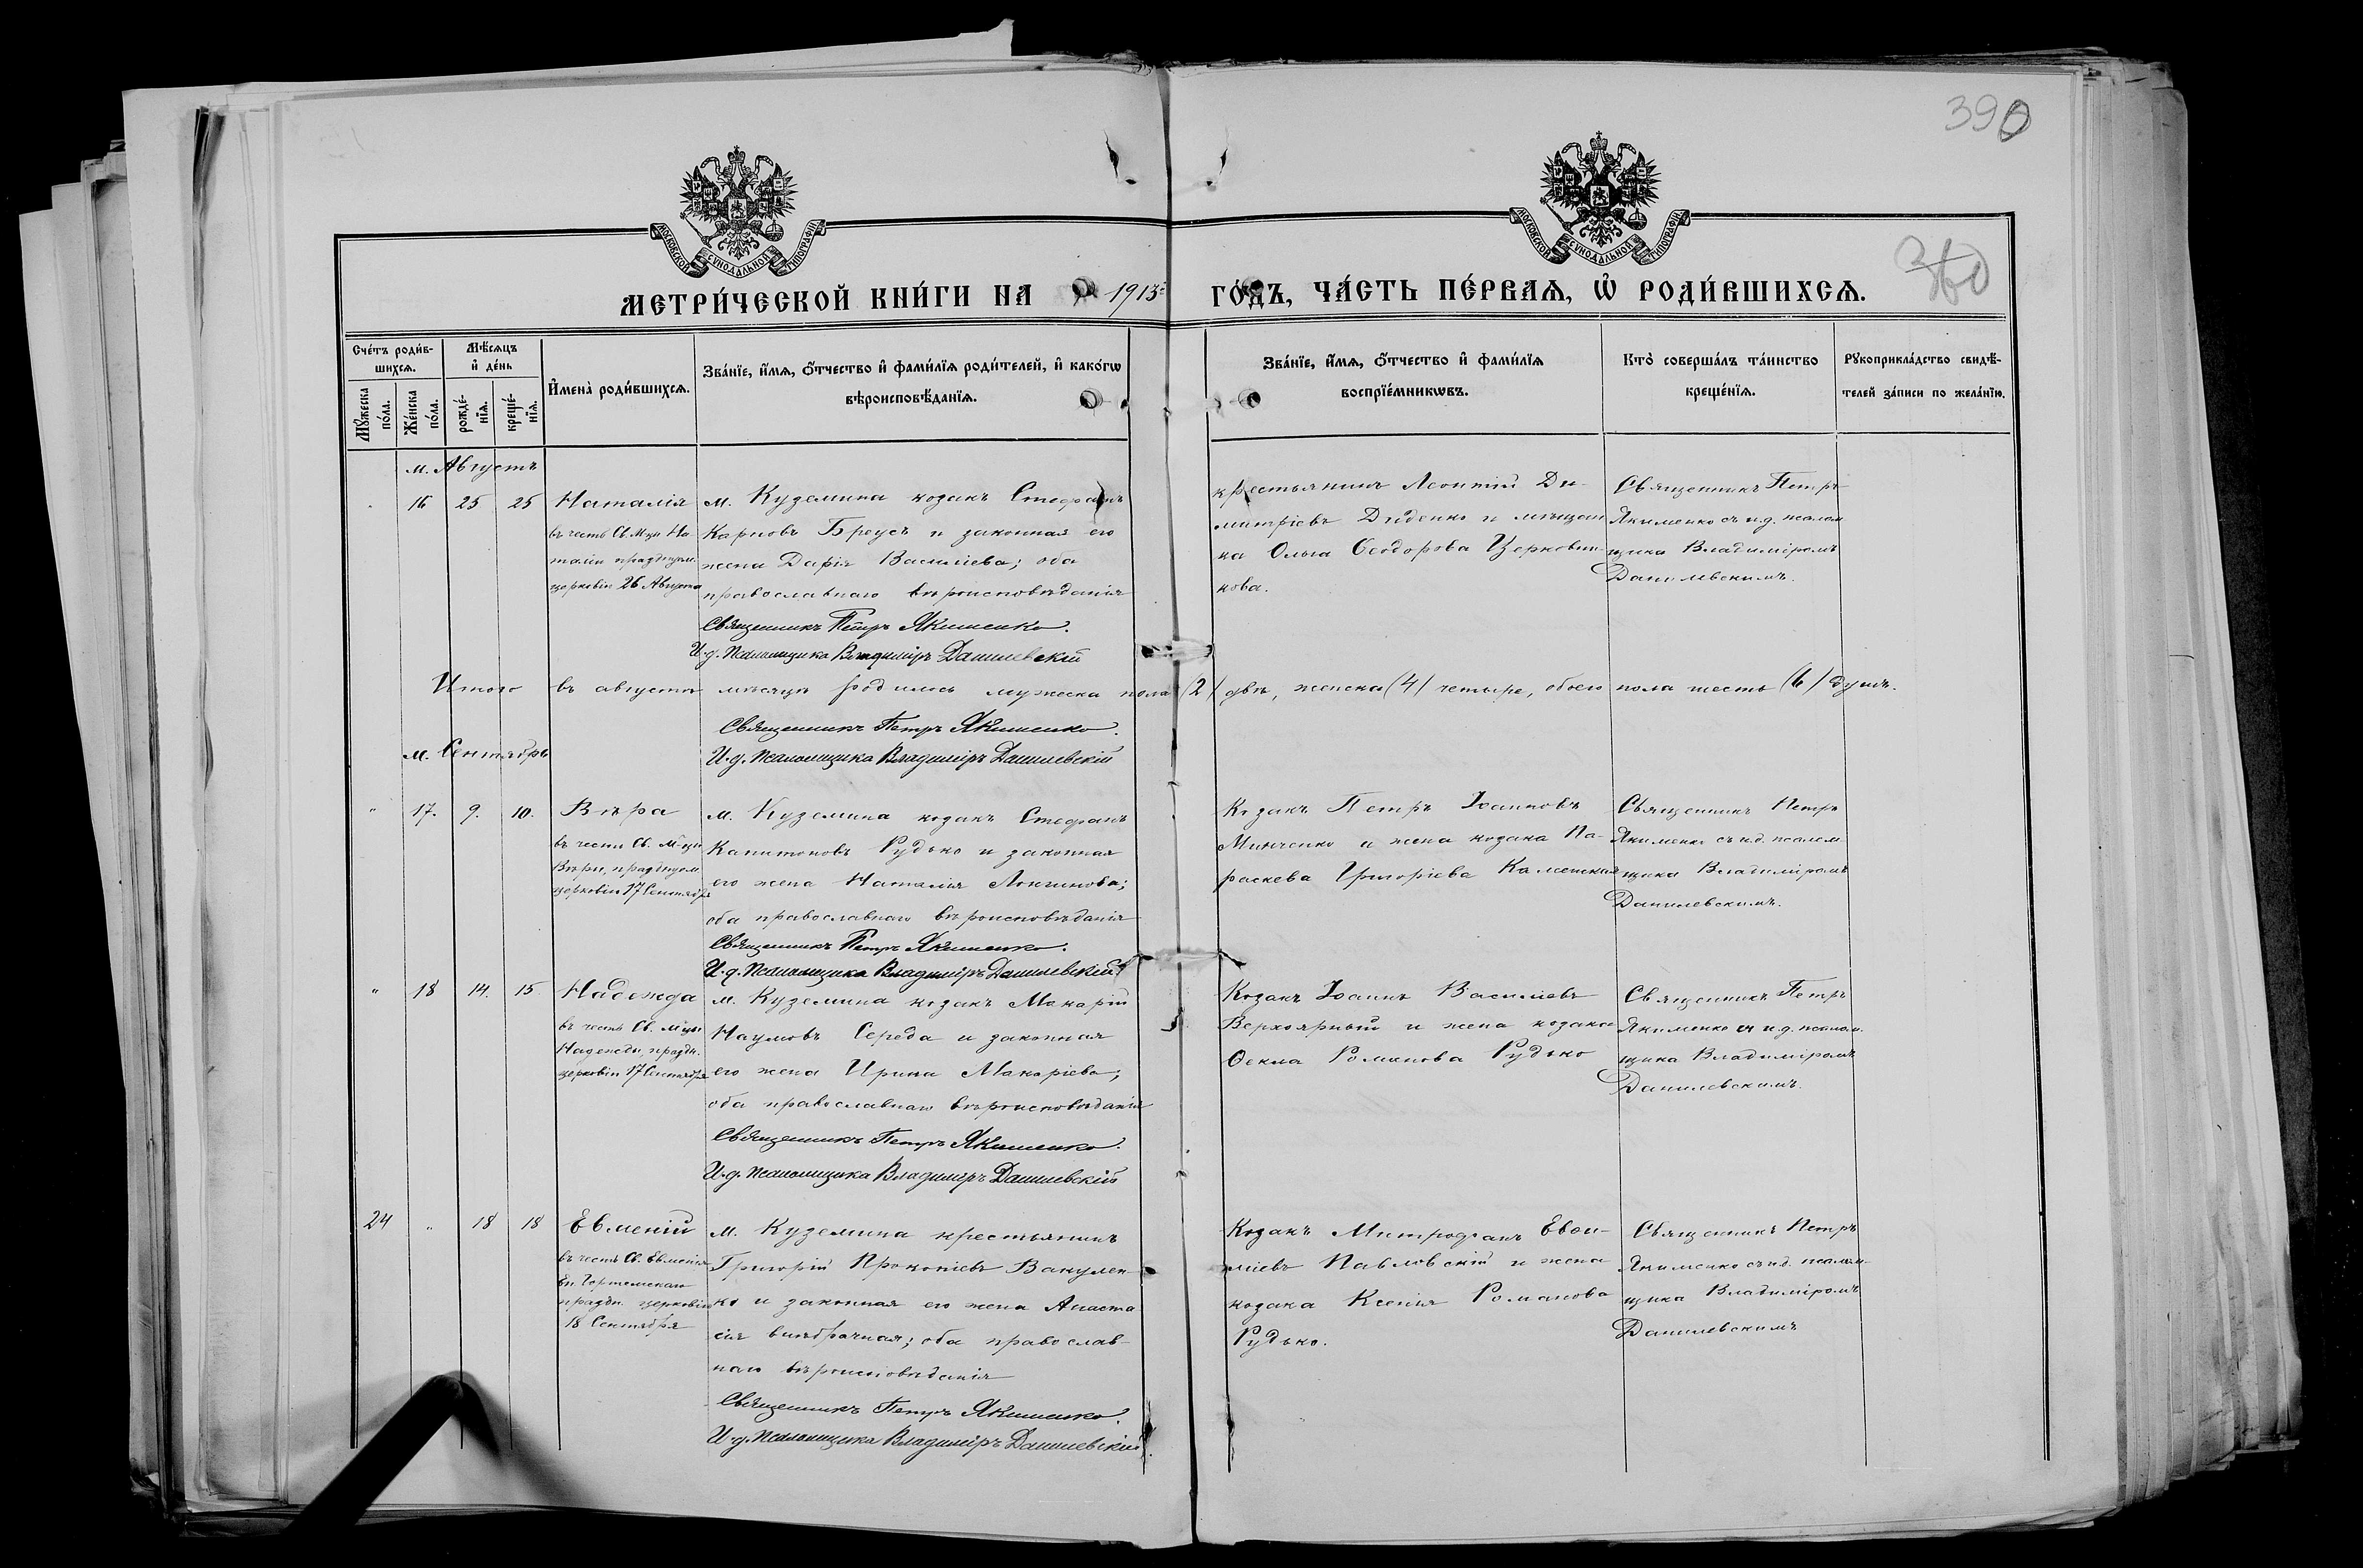 390
360
МОСКОВСКОЙ СУНОДАЛЬНОЙ ТИПОГРАФІИ
МОСКОВСКОЙ СУНОДАЛЬНОЙ ТИПОГРАФІИ
МЕТРИ́ЧЕСКОЙ КНИ́ГИ НА 1913 ГО́ДЪ, ЧА́СТЬ ПЕ́РВАѦ, Ѡ РОДИ́ВШИХСѦ.
Сче́тъ роди́в-
шихсѧ.
Мꙋжеска по́ла.
Же́нска по́ла.
Мѣ́сѧцъ
и҆ де́нь
рожде́-
нїѧ.
креще́-
нїѧ.
И҆мена̀ роди́вшихсѧ.
Зва́нїе, и҆́мѧ, о҆́тчество и҆ фами́лїѧ роди́телей, и҆ како́гѡ
вѣроисповѣ́данїѧ.
Зва́нїе, и҆́мѧ, о҆́тчество и҆ фами́лїѧ
воспрїе́мникѡвъ.
Кто̀ соверша́лъ та́инство
креще́нїѧ.
Рꙋкоприкла́дство свидѣ́-
телей за́писи по жела́нїю.
м. Августъ
16 25 25 Наталія
въ честь Св. М-цы На-
таліи празднуем.
церковію 26 Августа
м. Куземина козакъ Стефанъ
Карповъ Бреусъ и законная его
жена Дарія Василіева; оба
православнаго вѣроисповѣданія
Священникъ Петръ Якименко.
И. д. псаломщика Владиміръ Данилевскій
крестьянинъ Леонтій Ди-
митріевъ Диденко и мѣщан-
ка Ольга Ѳеодорова Церковни-
кова.
Священникъ Петръ
Якименко съ и.д. псалом-
щика Владиміромъ
Данилевскимъ.
Итого въ августѣ мѣсяцѣ родилось мужеска пола (2) двѣ, женска (4) четыре, обоего пола шесть (6) душъ.
Священникъ Петръ Якименко.
И. д. псаломщика Владиміръ Данилевскій
м. Сентябрь
" 17. 9. 10. Вѣра
въ честь Св. М-цы
Вѣры, празднуем.
церковію 17 Сентября
м. Куземина козакъ Стефанъ
Капитоновъ Рудько и законная
его жена Наталія Логинова;
оба православнаго вѣроисповѣданія
Священникъ Петръ Якименко.
И. д. псаломщика Владиміръ Данилевскій
Козакъ Петръ Іоанновъ
Минченко и жена козака Па-
раскева Григоріева
Священникъ Петръ
Якименко съ и.д. псалом-
щика Владиміромъ
Данилевскимъ.
" 18 14. 15 Надежда
въ честь Св. М-цы
Надежды, праздн.
церковію 17 Сентября
м. Куземина козакъ Макарій
Наумовъ Середа и законная
его жена Ирина Макаріева;
оба православнаго вѣроисповѣданія
Священникъ Петръ Якименко.
И. д. псаломщика Владиміръ Данилевскій
Козакъ Іоаннъ Василіевъ
Верхоярный и жена козака
Ѳекла Романова Рудько
Священникъ Петръ
Якименко съ и.д. псалом-
щика Владиміромъ
Данилевскимъ.
24 " 18 18 Евменій
въ честь Св. Евменія
Еп. Гортинскаго
праздн. церковію
18 Сентября
м. Куземина крестьянинъ
Григорій Прокопіевъ Вакулен-
ко и законная его жена Анаста
сія внѣбрачная; оба православ-
наго вѣроисповѣданія
Священникъ Петръ Якименко.
И. д. псаломщика Владиміръ Данилевскій.
Козакъ Митрофанъ Евѳи-
міевъ Павловскій и жена
козака Ксенія Романова
Рудько.
Священникъ Петръ
Якименко съ и.д. псалом-
щика Владиміромъ
Данилевскимъ